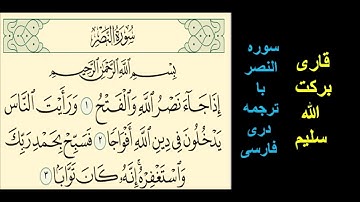 سُورَةُ النَّصْرِ
بِسْمِ اللَّهِ الرَّحْمَٰنِ الرَّحِيمِ
إِذَا جَآءَ نَصْرُ اللَّهِ وَالْفَتْحُ ١ وَرَأَيْتَ النَّاسَ
يَدْخُلُونَ فِي دِينِ اللَّهِ أَفْوَاجًا ٢ فَسَبِّحْ بِحَمْدِ رَبِّكَ
وَاسْتَغْفِرْهُ إِنَّهُ كَانَ تَوَّابًا ٣
قاری
برکت
الله
سلیم
سوره
النصر
با
ترجمه
دری
فارسی